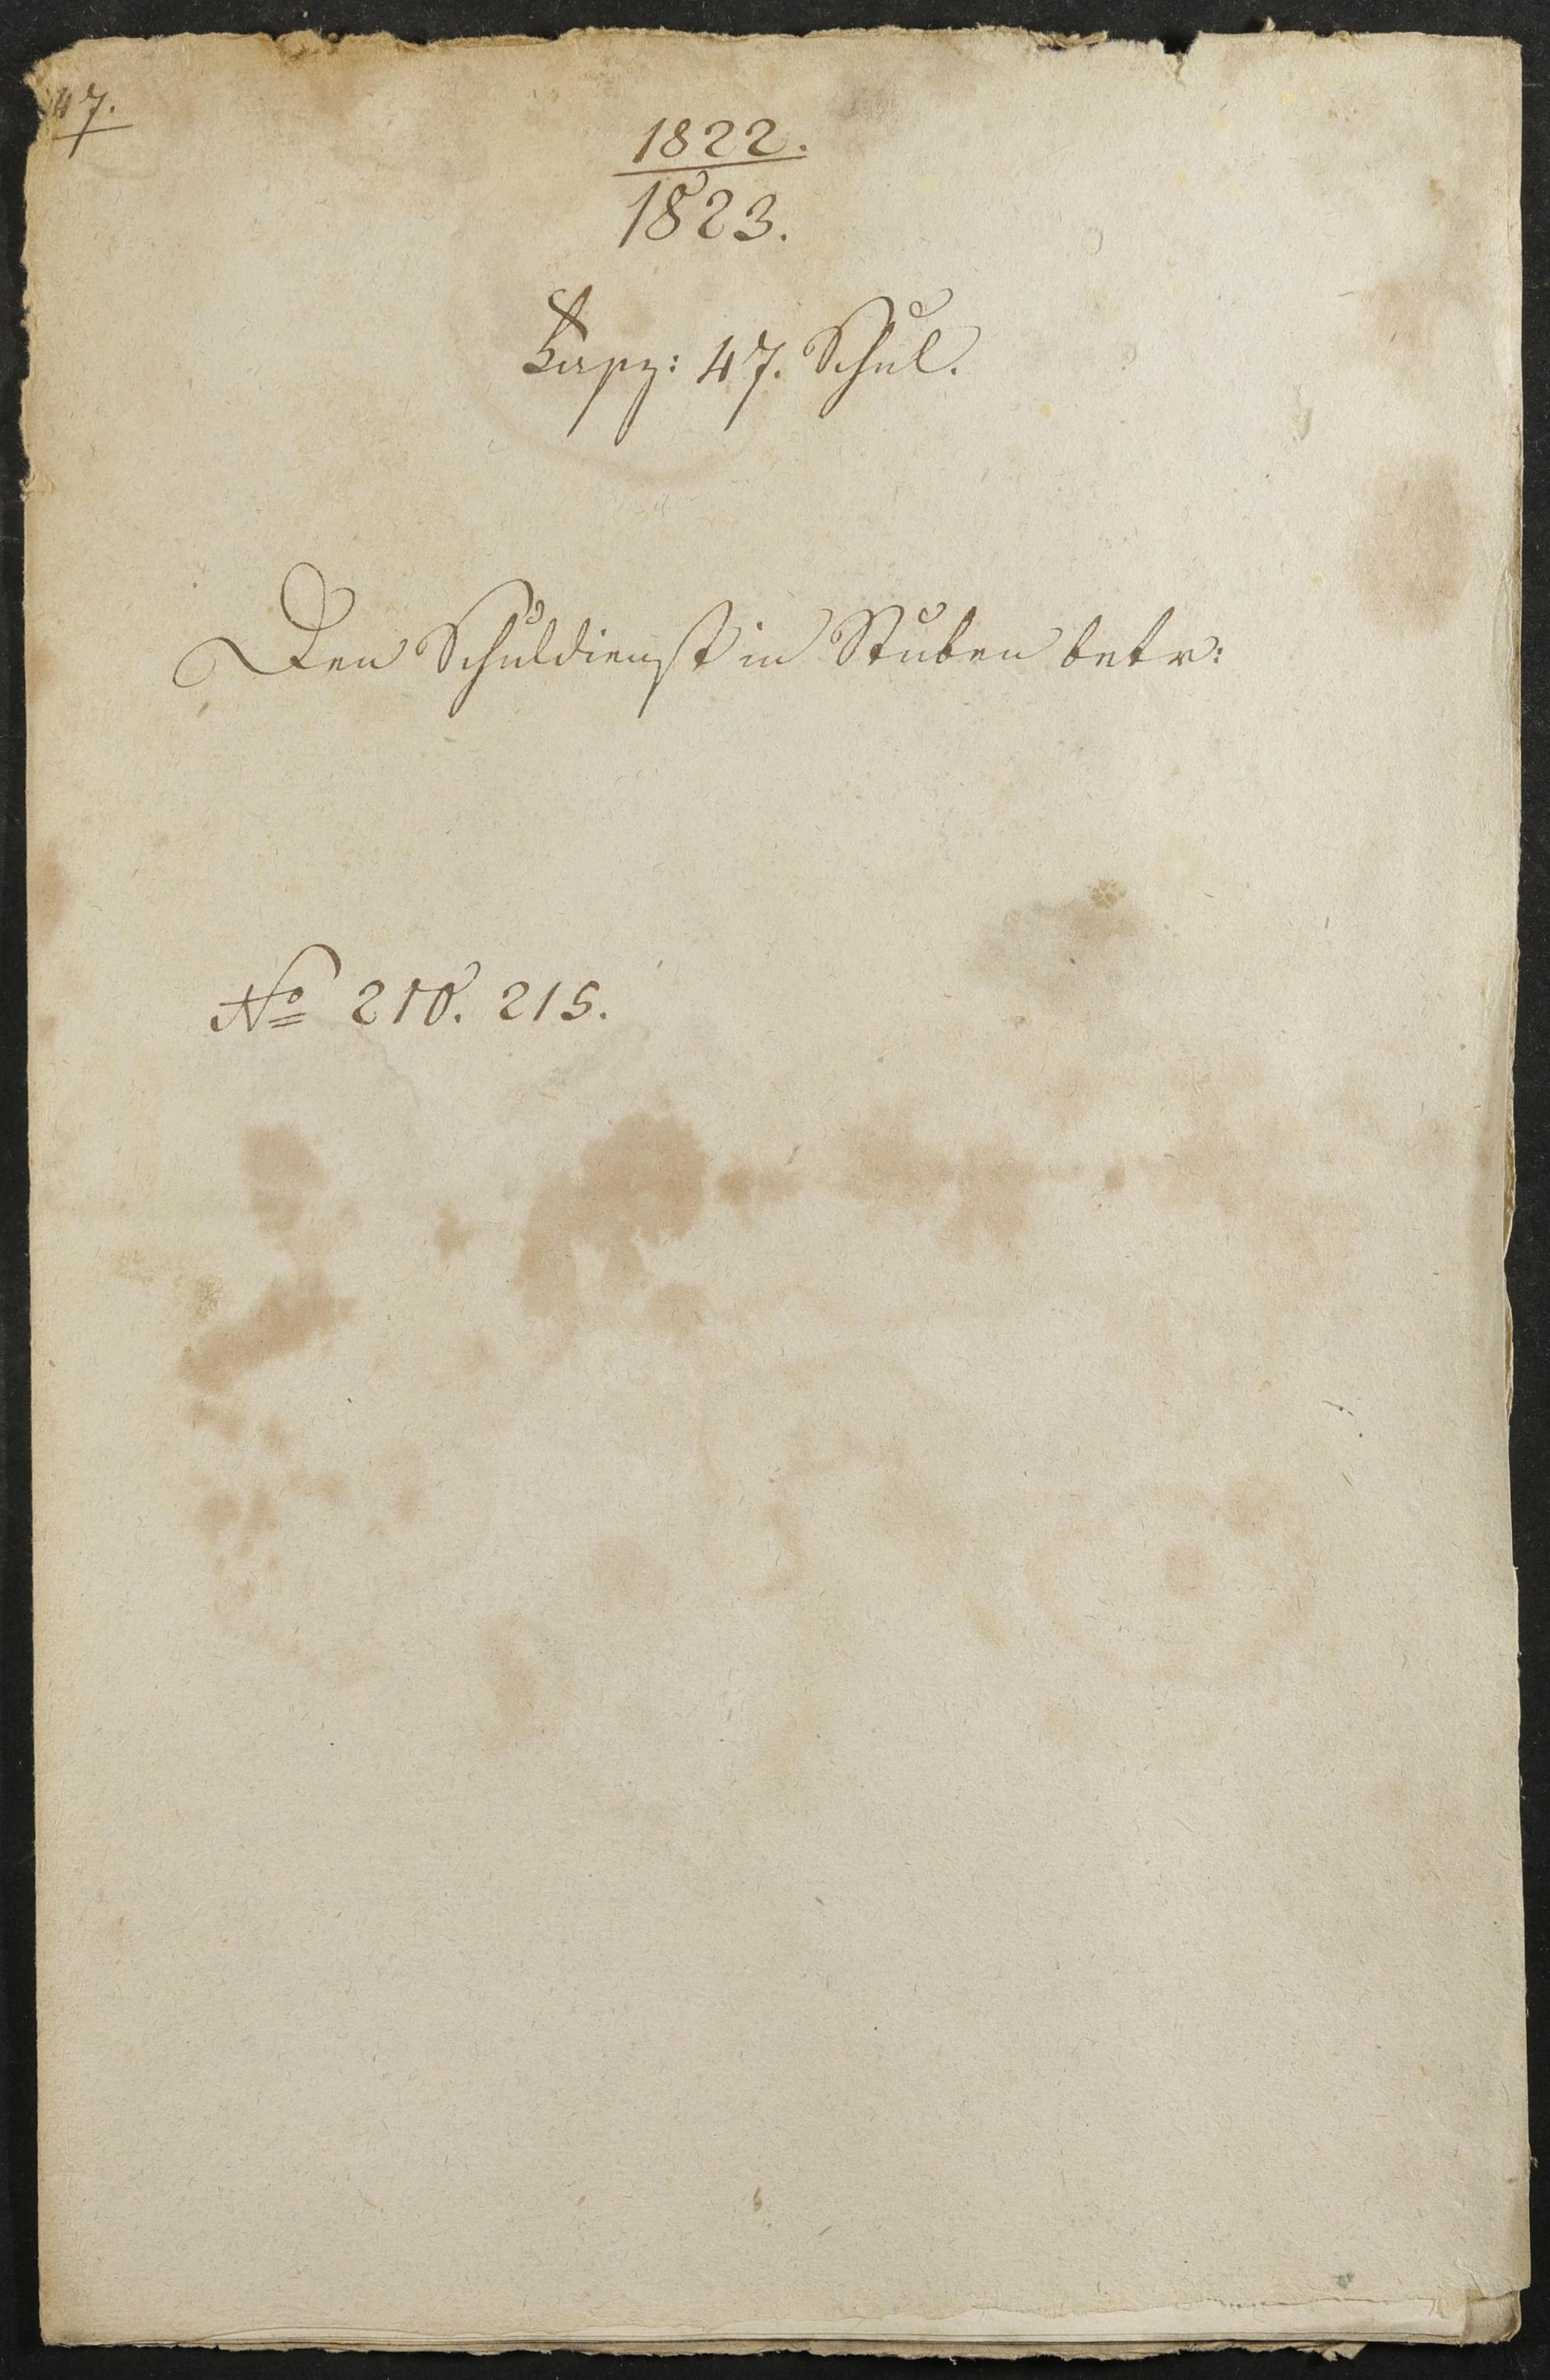 47.
1822.
1823.
Fasz: 47. Schul.
Den Schuldienst in Stuben betr:
No 210. 215.